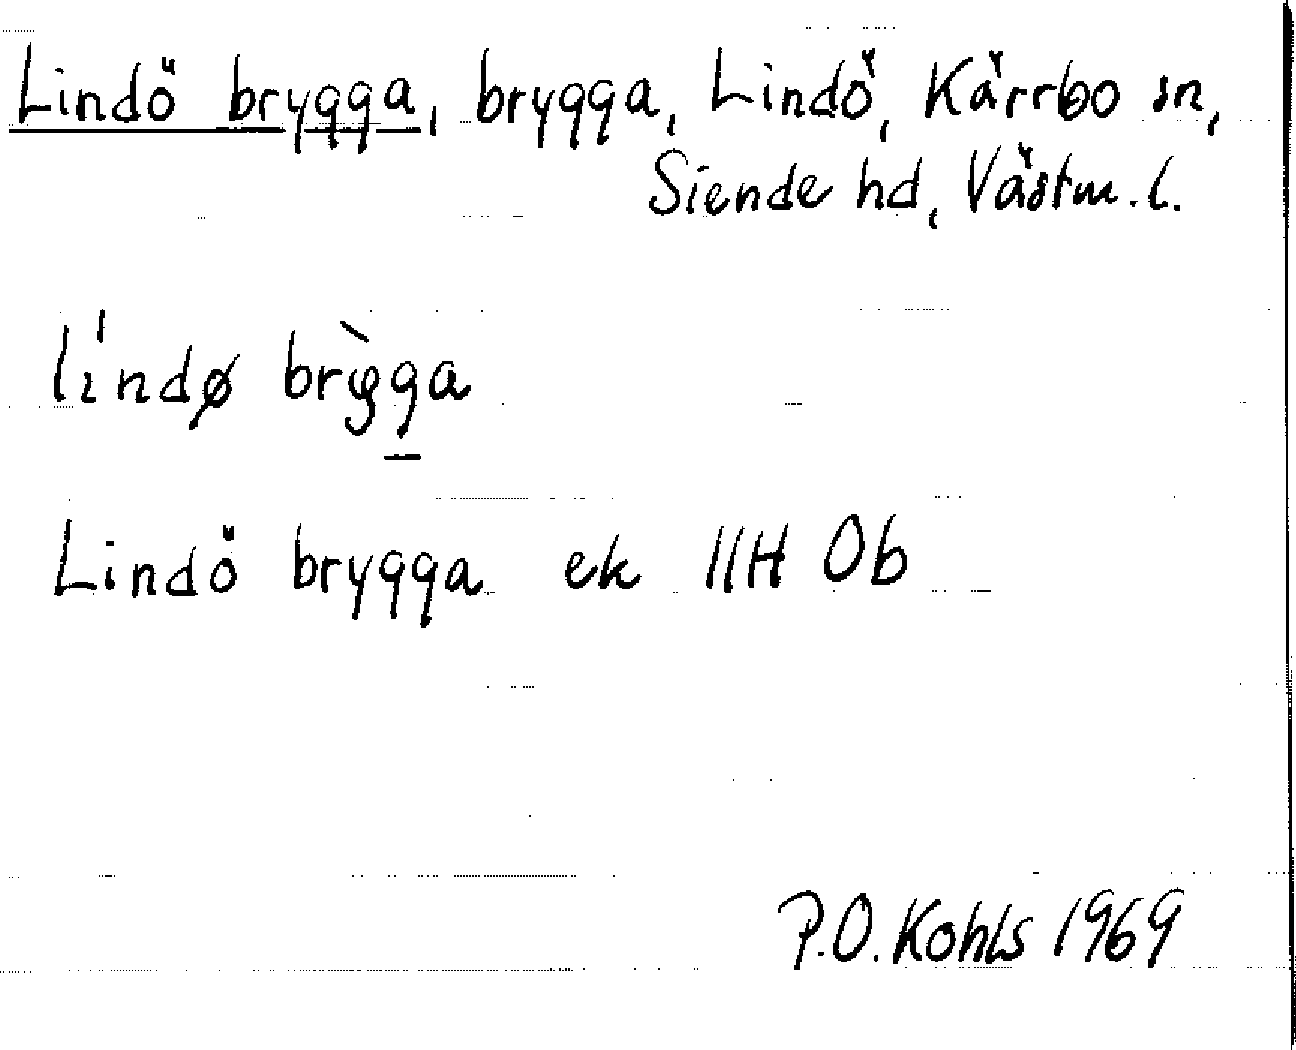 Lindö brygga, brygga, Lindö, Kärrbo sn,
Siende hd, Västm. l.
lı́ndø brỳgga
Lindö brygga ek 11H 0b
P.O. Kohls 1969